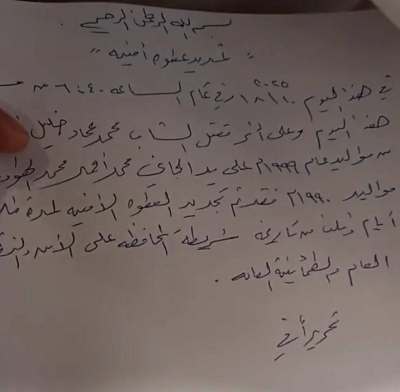 بسم الله الرحمن الرحيم
" تمديد عطوه أمنيه "
في هذا اليوم ٢٠٢٥/٨/١٠ وفي تمام الساعه ٦:٤٠
هذا اليوم وعلى أثر مقتل الشاب محمد محمود خليل
من مواليد عام ١٩٩٦م على يد الجاني محمد أحمد محمد
مواليد ١٩٩٠م فقد تم تجديد العطوه الأمنيه لمدة
أيام وذلك من تاريخه شريطة المحافظه على الأمن
العام والطمأنينة العامه .
تحريراً في